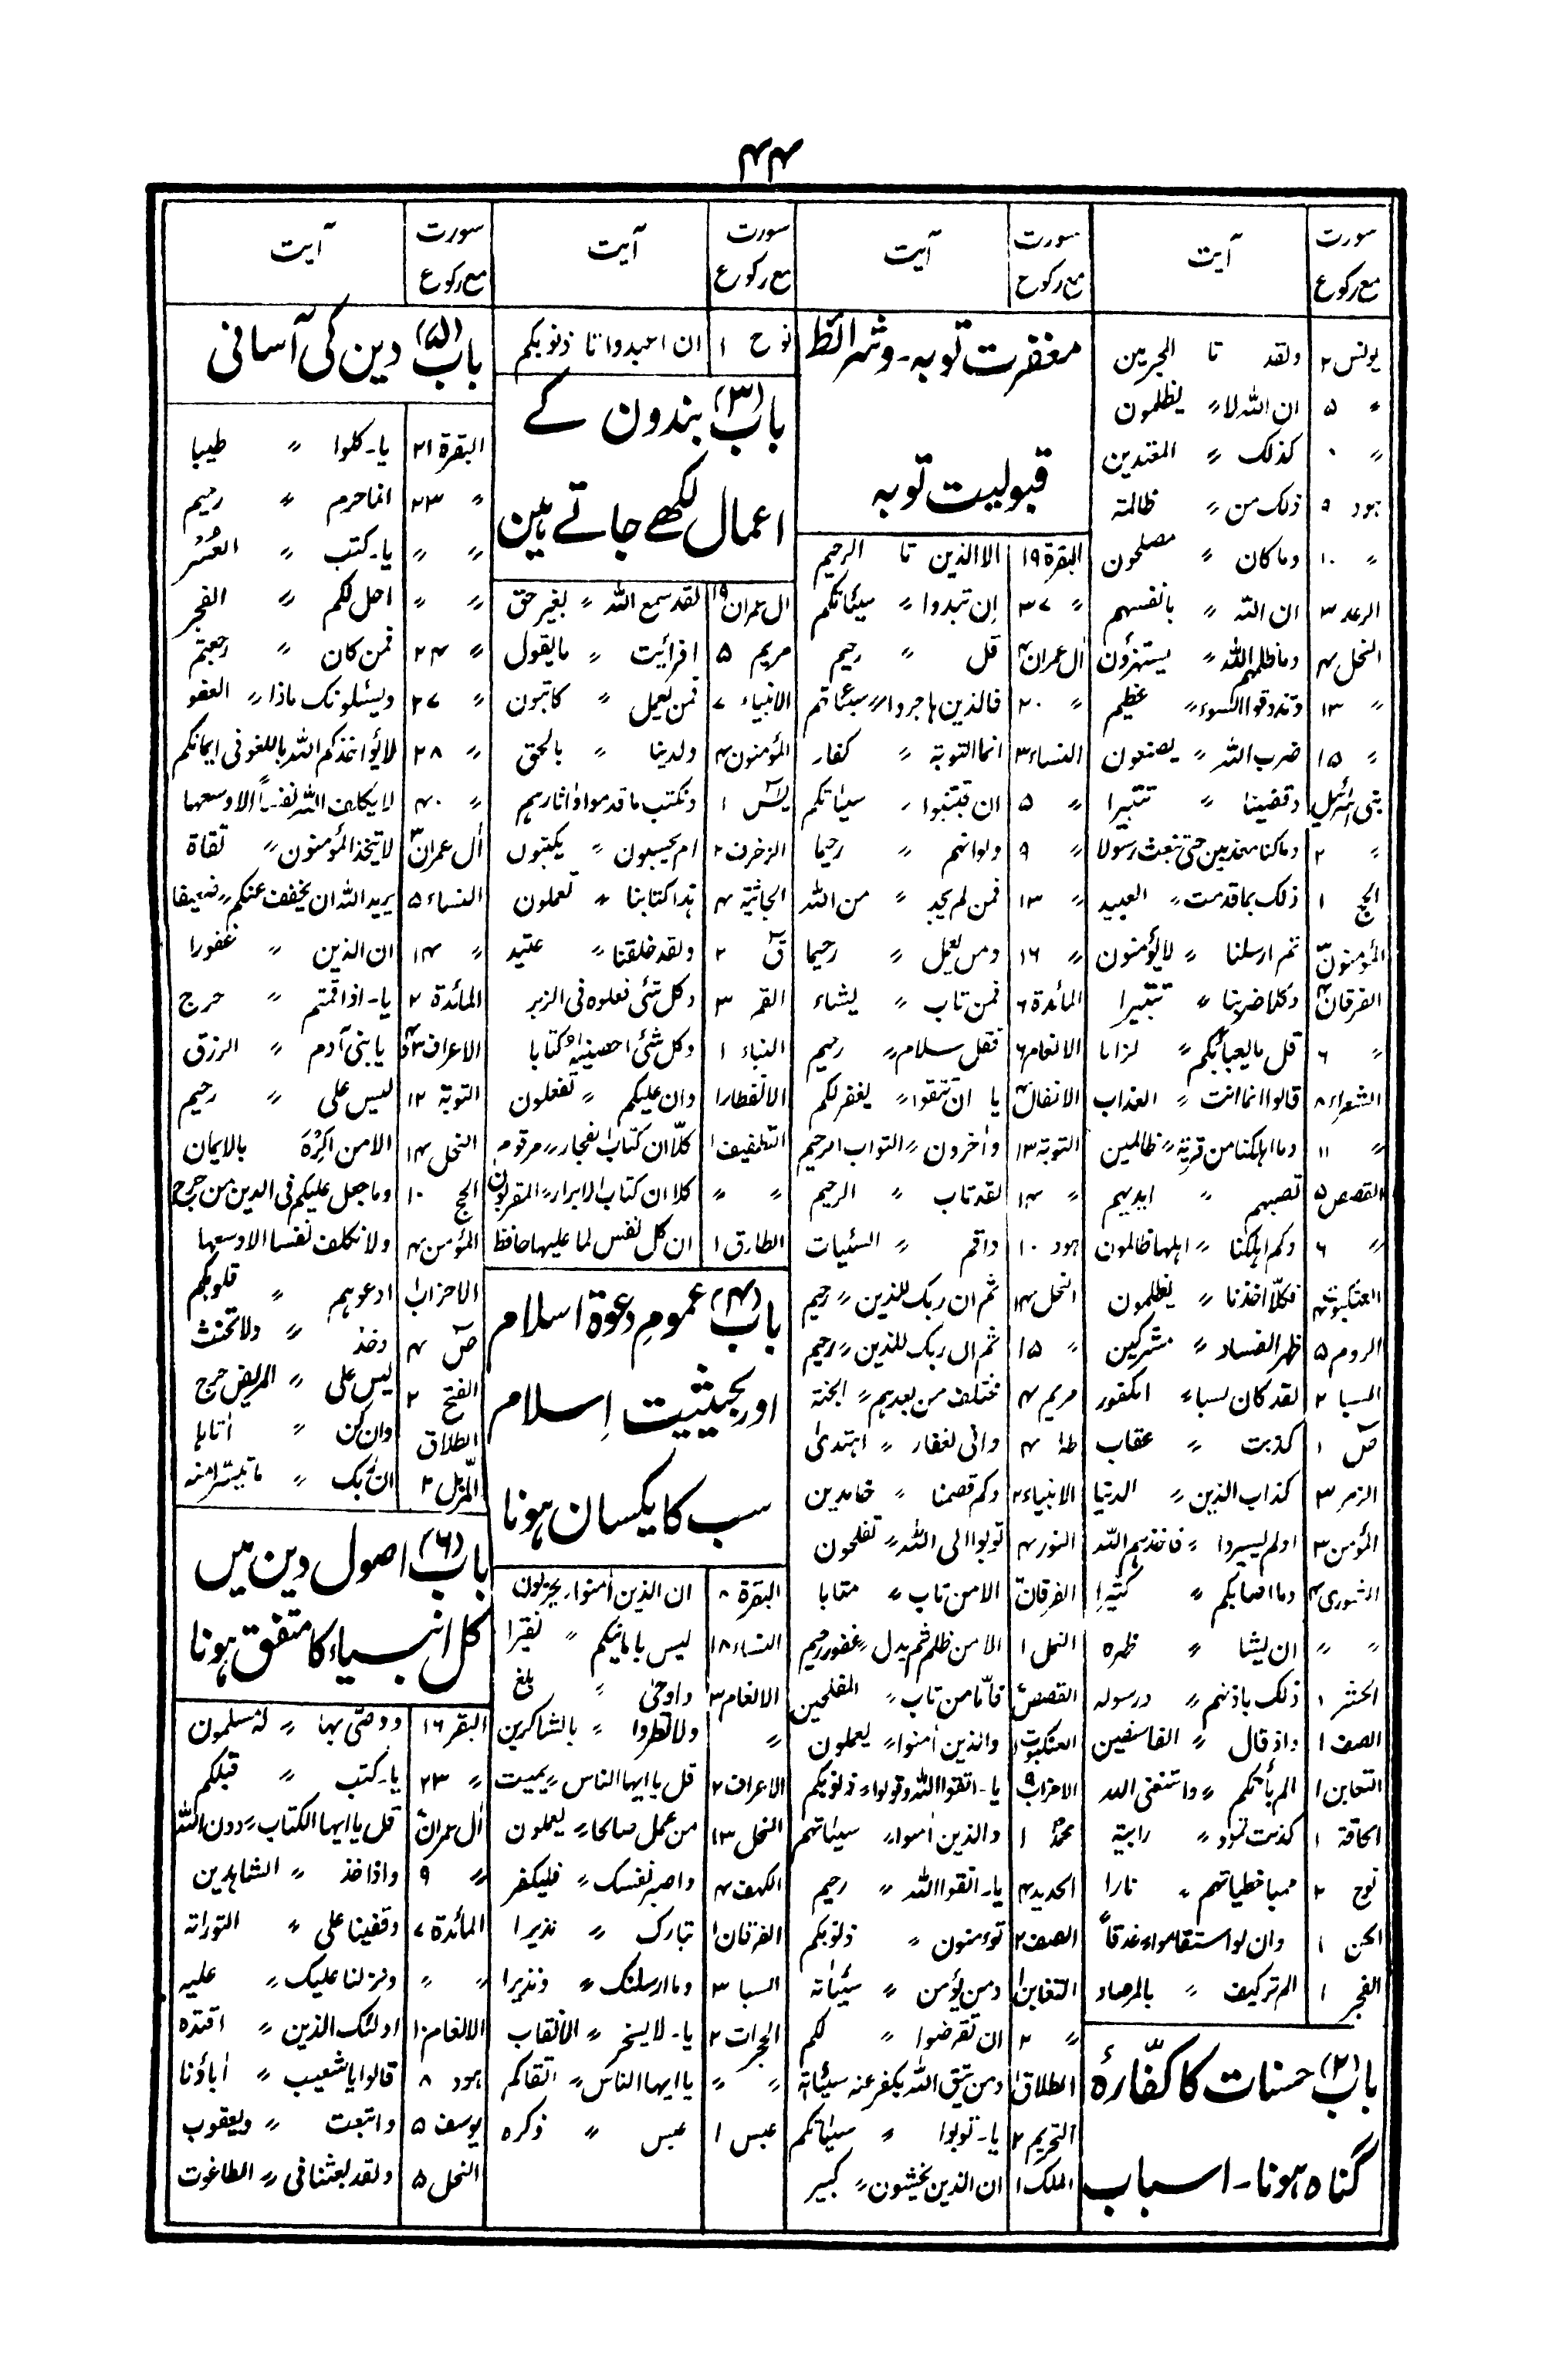 ۴۴
سورت مع رکوع آیت
یونس ۲ ولقد تا المجرمین
〃 ۵ ان اللہ لا 〃 یظلمون
〃 کذلک 〃 المعتدین
ہود ۹ ذلک من 〃 ظالمتہ
〃 ۱۰ وماکان 〃 مصلحون
الرعد ۳ ان اللہ 〃 بانفسہم
النحل ۴ وماظلمہم اللہ 〃 یستہزؤن
〃 ۱۳ وتذوقوا السوء 〃 عظیم
〃 ۱۵ ضرب اللہ 〃 یصنعون
بنی اسرائیل وقضینا 〃 تتبیرا
〃 ۲ وماکنا معذبین حتی نبعث رسولا
الحج ۱ ذلک بماقدمت 〃 العبید
المؤمنون ثم ارسلنا 〃 لایؤمنون
الفرقان وکلا ضربنا 〃 تتبیرا
〃 ۶ قل مایعبأبکم 〃 لزاما
الشعراء ۸ قالوا انما انت 〃 العذاب
〃 ۱۱ وما اہلکنا من قریۃ 〃 ظالمین
القصص ۵ تصبہم 〃 ایدیہم
〃 ۶ وکم اہلکنا 〃 اہلہا ظالمون
العنکبوت ۴ فکلا اخذنا 〃 یظلمون
الروم ۵ ظہر الفساد 〃 مشرکین
السبا ۲ لقد کان لسباء الکفور
صٓ ۱ کذبت 〃 عقاب
الزمر ۳ کذاب الذین 〃 الدنیا
المؤمن ۳ اولم یسیروا 〃 فاخذہم اللہ
الشوری ۴ وما اصابکم 〃 کثیرا
〃 〃 ان یشا 〃 ظہرہ
الحشر ۱ ذلک بانہم 〃 ورسولہ
الصف ۱ واذ قال 〃 الفاسقین
التغابن ۱ الم یأتکم 〃 واستغنی اللہ
الحاقۃ ۱ کذبت ثمود 〃 رابیۃ
نوح ۲ مما خطیاتہم 〃 نارا
الجن ۱ وان لو استقاموا 〃 غدقاً
الفجر ۱ الم ترکیف 〃 بالمرصاد
باب (۲) حسنات کا کفّارۂ
گناہ ہونا ۔ اسباب
سورت مع رکوع آیت
مغفرت توبہ ۔ وشرائط
قبولیت توبہ
البقرۃ ۱۹ الا الذین تا الرحیم
〃 ۳۷ ان تبدوا 〃 سیئاتکم
اٰل عمران ۴ قل 〃 رحیم
〃 ۲۰ فالذین ہاجروا 〃 سیئاتہم
النساء ۳ انما التوبۃ 〃 کفار
〃 ۵ ان تجتنبوا 〃 سیئاتکم
〃 ۹ ولو انہم 〃 رحیما
〃 ۱۳ فمن لم یجد 〃 من اللہ
〃 ۱۶ ومن یعمل 〃 رحیما
المائدۃ ۶ فمن تاب 〃 یشاء
الانعام ۶ فقل سلام 〃 رحیم
الانفال ۴ یا ان تتقوا 〃 یغفرلکم
التوبۃ ۱۳ واٰخرون 〃 التواب الرحیم
〃 ۱۴ لقد تاب 〃 الرحیم
ہود ۱۰ واقم 〃 السئیات
النحل ۱۴ ثم ان ربک للذین 〃 رحیم
〃 ۱۵ ثم ان ربک للذین 〃 رحیم
مریم ۴ فخلف من بعدہم 〃 الجنۃ
طہٰ ۴ وانی لغفار 〃 اہتدیٰ
الانبیاء ۲ وکم قصمنا 〃 خامدین
النور ۴ توبوا الی اللہ 〃 تفلحون
الفرقان الا من تاب 〃 متابا
النمل ۱ الا من ظلم ثم بدل 〃 غفور رحیم
القصص فاما من تاب 〃 المفلحین
العنکبوت والذین اٰمنوا 〃 یعملون
الاحزاب ۹ یا ۔ اتقوا اللہ وقولوا 〃 ذنوبکم
محمدؐ ۱ والذین اٰمنوا 〃 سیئاتہم
الحدید ۴ یا ۔ اتقوا اللہ 〃 رحیم
الصف ۲ تومنون 〃 ذنوبکم
التغابن ۱ ومن یؤمن 〃 سیئاتہ
〃 ۲ ان تقرضوا 〃 لکم
الطلاق ومن یتق اللہ یکفر عنہ سیئاتہ
التحریم ۲ یا ۔ توبوا 〃 سیئاتکم
الملک ۱ ان الذین یخشون 〃 کبیر
سورت مع رکوع آیت
نوح ۱ ان اعبدوا تا ذنوبکم
باب (۳) بندون کے
اعمال لکھے جاتے ہین
اٰل عمران ۱۹ لقد سمع اللہ 〃 بغیر حق
مریم ۵ افرأیت 〃 مایقول
الانبیاء ۷ فمن یعمل 〃 کاتبون
المؤمنون ۴ ولدینا 〃 بالحق
یٰسٓ ۱ ونکتب ماقدموا واٰثارہم
الزخرف ۲ ام یحسبون 〃 یکتبون
الجاثیۃ ۴ ہذا کتابنا 〃 تعملون
قٓ ۲ ولقد خلقنا 〃 عتید
القمر ۳ وکل شئی فعلوہ فی الزبر
النباء ۱ وکل شئی احصیناہ کتابا
الانفطار ۱ وان علیکم 〃 تفعلون
التطفیف ۱ کلا ان کتاب الفجار 〃 مرقوم
〃 〃 کلا ان کتاب الابرار 〃 المقربون
الطارق ۱ ان کل نفس لما علیہا حافظ
باب (۴) عموم دعوۃ اسلام
اور بحیثیت اِسلام
سب کا یکسان ہونا
البقرۃ ۸ ان الذین اٰمنوا 〃 یحزنون
النساء ۱۸ لیس بامانیکم 〃 نقیرا
الانعام ۳ واوحی 〃 بلغ
〃 ولاتطردوا 〃 بالشاکرین
الاعراف ۲ قل یاایہا الناس 〃 یمیت
النحل ۱۳ من عمل صالحا 〃 یعملون
الکہف ۴ واصبر نفسک 〃 فلیکفر
الفرقان ۱ تبارک 〃 نذیرا
السبا ۳ وما ارسلنک 〃 ونذیرا
الحجرات ۲ یا ۔ لایسخر 〃 الالقاب
〃 〃 یاایہا الناس 〃 اتقاکم
عبس ۱ عبس 〃 ذکرہ
سورت مع رکوع آیت
باب (۵) دین کی آسانی
البقرۃ ۲۱ یا ۔ کلوا 〃 طیبا
〃 ۲۳ انما حرم 〃 رحیم
〃 〃 یا ۔ کتب 〃 العُسْر
〃 〃 احل لکم 〃 الفجر
〃 ۲۴ فمن کان 〃 رجعتم
〃 ۲۷ ویسئلونک ماذا 〃 العفو
〃 ۲۸ لایؤاخذکم اللہ باللغو فی ایمانکم
〃 ۴۰ لایکلف اللہ نفساً الا وسعہا
اٰل عمران لایتخذ المؤمنون 〃 تقاۃ
النساء ۵ یرید اللہ ان یخفف عنکم 〃 ضعیفا
〃 ۱۴ ان الذین 〃 غفورا
المائدۃ ۲ یا ۔ اذا قمتم 〃 حرج
الاعراف یابنی آدم 〃 الرزق
التوبۃ ۱۲ لیس علی 〃 رحیم
النحل ۱۴ الا من اُکرِہَ بالایمان
الحج ۱۰ وما جعل علیکم فی الدین من حرج
المؤمن ۴ ولانکلف نفسا الا وسعہا
الاحزاب ادعوہم 〃 قلوبکم
صٓ ۴ وخذ 〃 ولاتحنث
الفتح ۲ لیس علی 〃 المریض حرج
الطلاق وان کن 〃 اٰتاہا
المزمل ۲ ان ربک 〃 ماتیسر منہ
باب (۶) اصول دین میں
کل انبیاء کا متفق ہونا
البقر ۱۶ ووصّی بہا 〃 لہ مسلمون
〃 ۲۳ یا ۔ کتب 〃 قبلکم
اٰل عمران قل یاایہا الکتاب 〃 دون اللہ
〃 ۹ واذ اخذ 〃 الشاہدین
المائدۃ ۷ وقفینا علی 〃 التوراتہ
〃 〃 ونزلنا علیک 〃 علیہ
الانعام ۱۰ اولئک الذین 〃 اقتدہ
ہود ۸ قالوا یاشعیب 〃 اٰباؤنا
یوسف ۵ واتبعت 〃 ویعقوب
النحل ۵ ولقد بعثنا فی 〃 الطاغوت